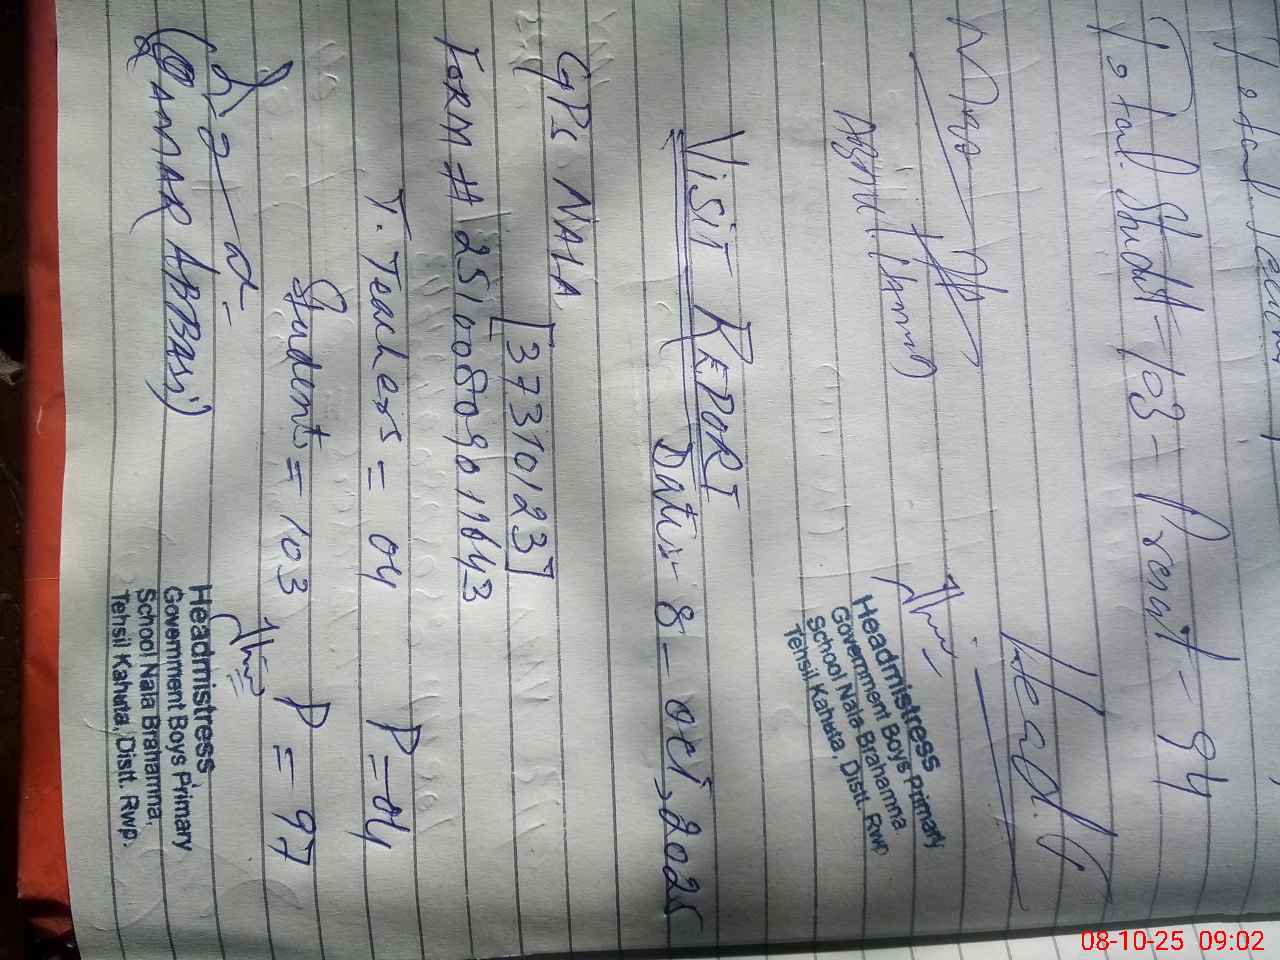 Total Teach
Total Student - 103 - Present - 94
Head.
Headmistress
Government Boys Primary
School Nala Brahamna
Tehsil Kahuta, Distt. Rwp
VISIT REPORT
Date:- 8 - oct, 2025
GPS NALA
[37310123]
FORM # 25100809011643
T. Teachers = 04 P = 04
Students = 103 P = 97
(QAMAR ABBASI)
Headmistress
Government Boys Primary
School Nala Brahamna,
Tehsil Kahuta, Distt. Rwp.
08-10-25 09:02